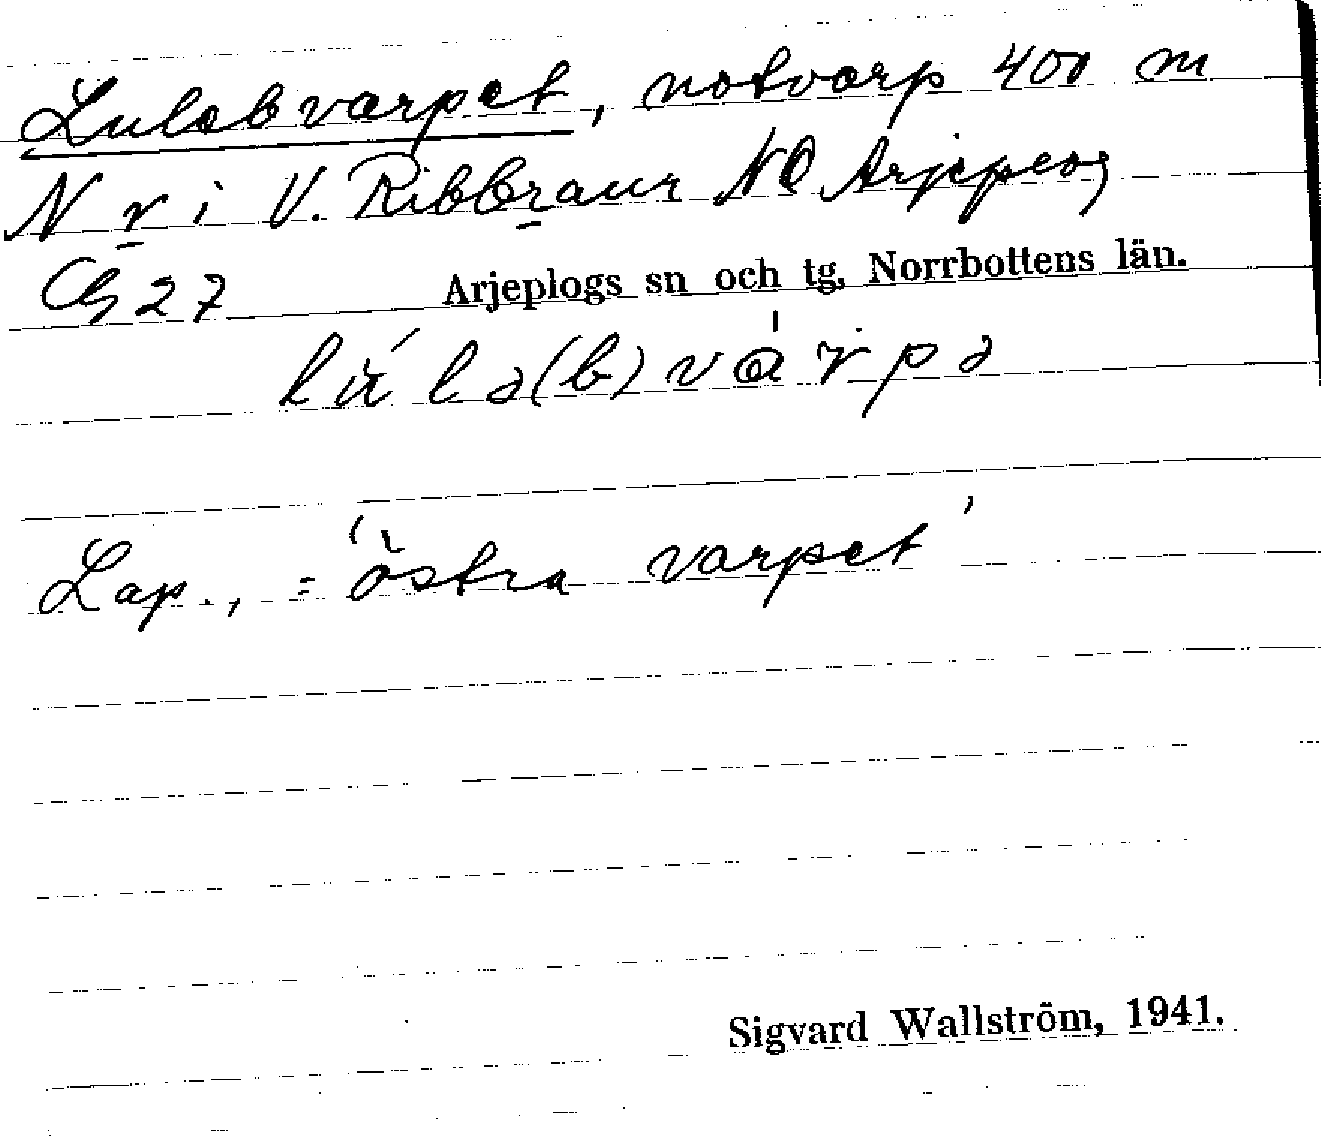 Lulebvarpet, notvarp 400 m
N r i V. Ribbraur NO Arjeplog
G 27 Arjeplogs sn och tg, Norrbottens län.
lúlə(b)vɑ̀rpə
Lap., = 'östra varpet'
Sigvard Wallström, 1941.